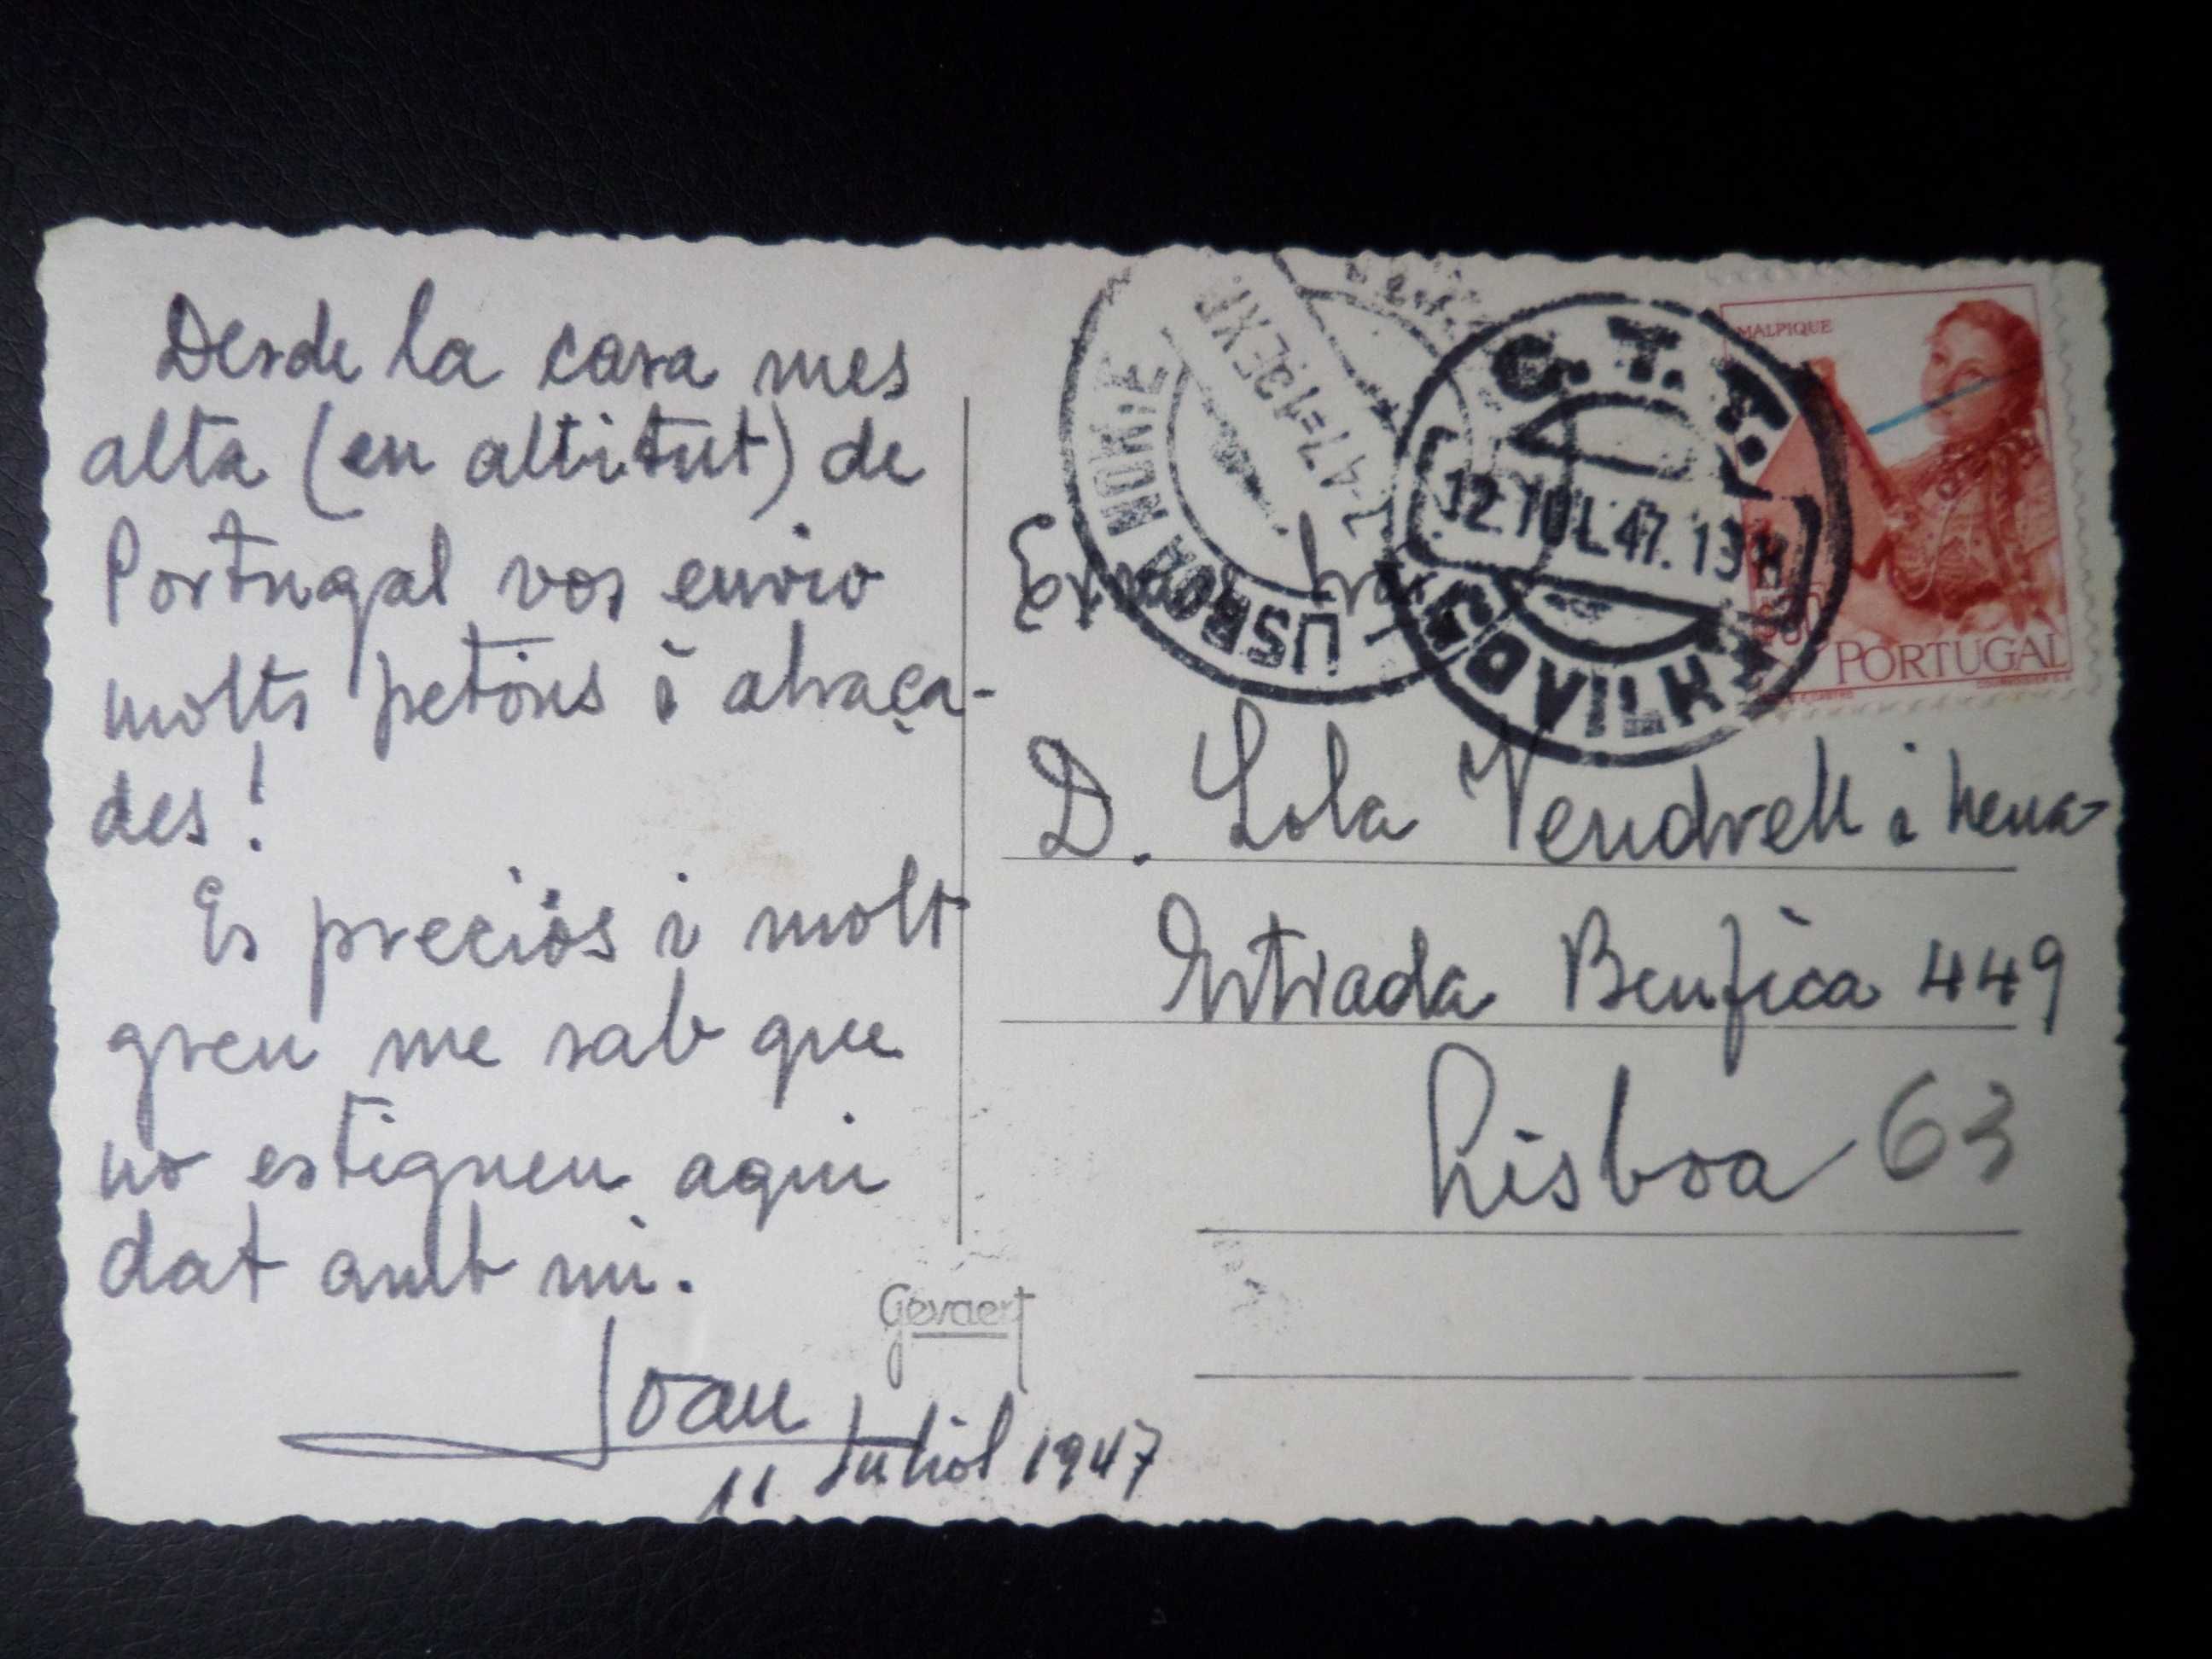 Desde la casa mes
alta (en altitut) de
Portugal vos envio
molts petons i abraça-
des!
Es preciós i molt
greu me sab que
no estigueu aqui
dat amb mi.
Joan
11 Juliol 1947
Gevaert
LISBOA NORTE
C.T.T.
12 JUL.47.13H
COVILHÃ
MALPIQUE
PORTUGAL
D. Lola Vendrell i nena
Estrada Benfica 449
Lisboa 63